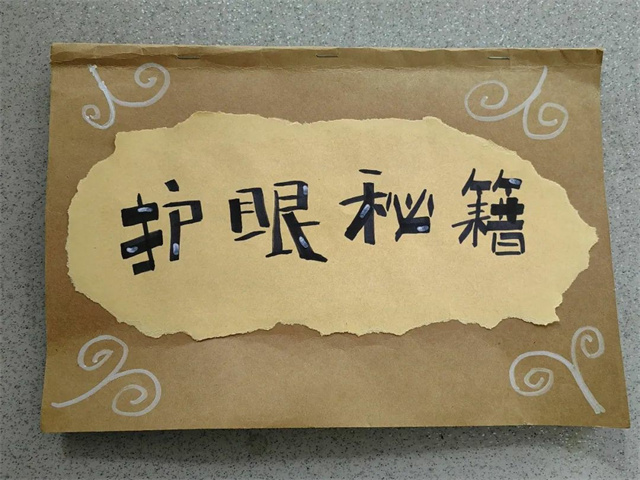 护眼秘籍